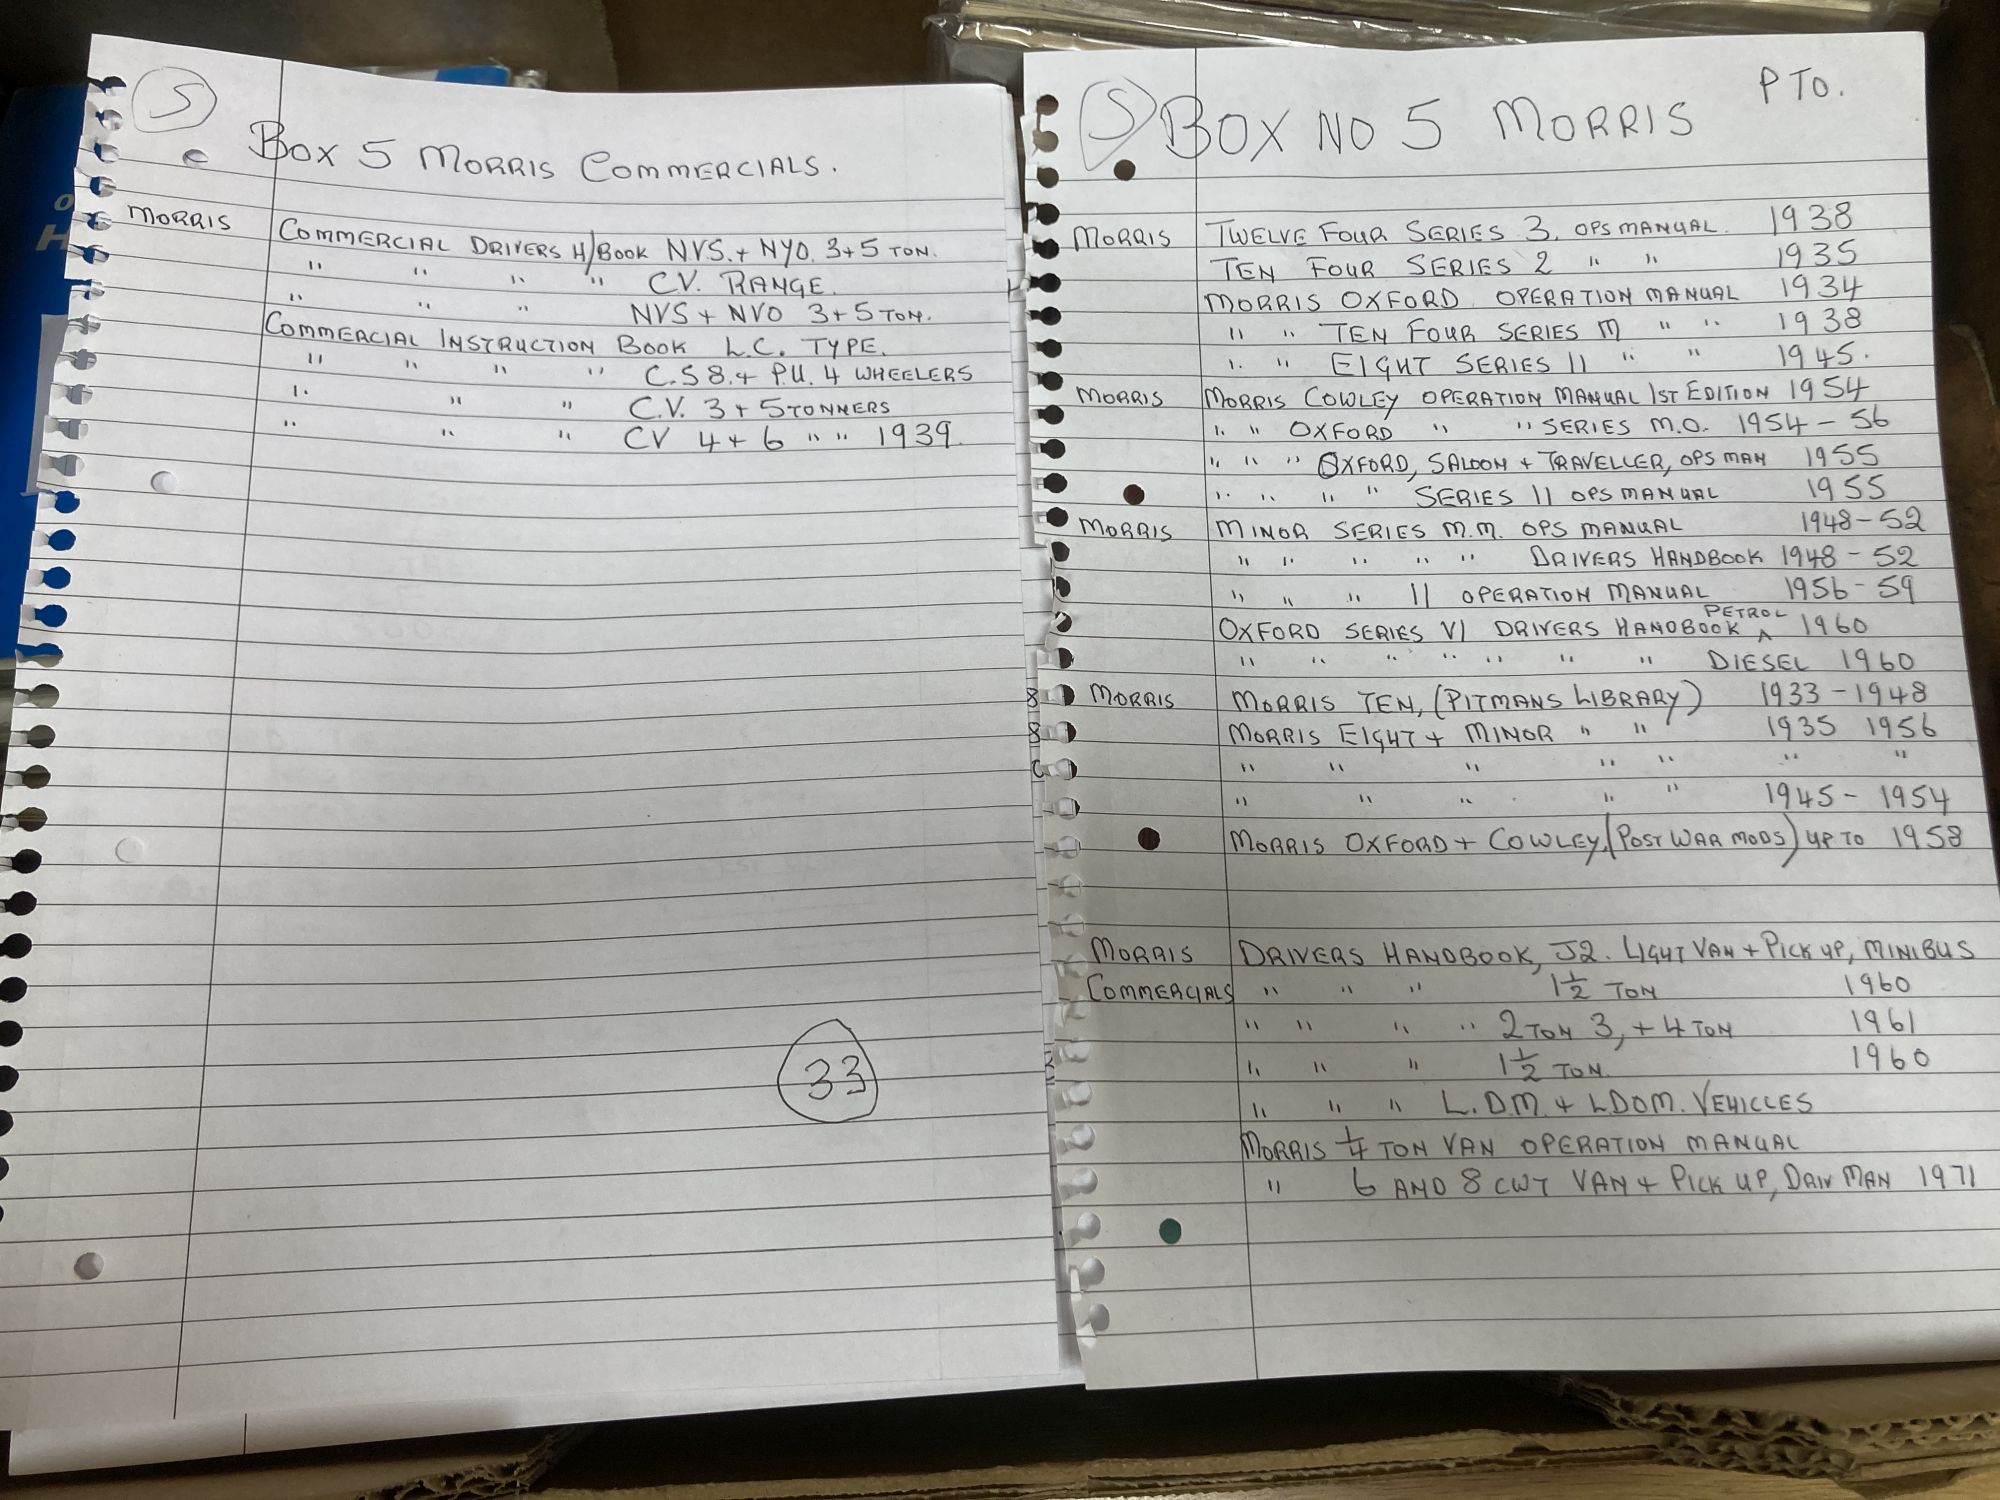 5
BOX 5 MORRIS COMMERCIALS.
MORRIS COMMERCIAL DRIVERS H/BOOK NVS.+ NYO. 3+5 TON.
" " " " CV. RANGE.
" " " NVS + NVO 3+5 TON.
COMMERCIAL INSTRUCTION BOOK L.C. TYPE.
" " " " C.S 8.+ P.U. 4 WHEELERS
" " " C.V. 3+5 TONNERS
" " " CV 4+6 " " 1939.
33
PTO.
5 BOX NO 5 MORRIS
MORRIS TWELVE FOUR SERIES 3. OPS MANUAL. 1938
TEN FOUR SERIES 2 " " 1935
MORRIS OXFORD OPERATION MANUAL 1934
" " TEN FOUR SERIES M " " 1938
" " EIGHT SERIES II " " 1945.
MORRIS MORRIS COWLEY OPERATION MANUAL 1ST EDITION 1954
" " OXFORD " " SERIES M.O. 1954 - 56
" " " OXFORD, SALOON + TRAVELLER, OPS MAN 1955
" " " " SERIES II OPS MANUAL 1955
MORRIS MINOR SERIES M.M. OPS MANUAL 1948-52
" " " " " DRIVERS HANDBOOK 1948 - 52
" " " II OPERATION MANUAL 1956 - 59
OXFORD SERIES VI DRIVERS HANDBOOK PETROL 1960
" " " " " " " DIESEL 1960
MORRIS MORRIS TEN, (PITMANS LIBRARY) 1933 - 1948
MORRIS EIGHT + MINOR " " 1935 1956
" " " " " " "
" " " " " 1945 - 1954
MORRIS OXFORD + COWLEY, (POST WAR MODS) UP TO 1958
MORRIS DRIVERS HANDBOOK, J2. LIGHT VAN + PICK UP, MINIBUS
COMMERCIALS " " " 1½ TON 1960
" " " " 2 TON 3, + 4 TON 1961
" " " 1½ TON. 1960
" " " L.D.M. + L.DOM. VEHICLES
MORRIS ¼ TON VAN OPERATION MANUAL
" 6 AND 8 CWT VAN + PICK UP, DRIV MAN 1971